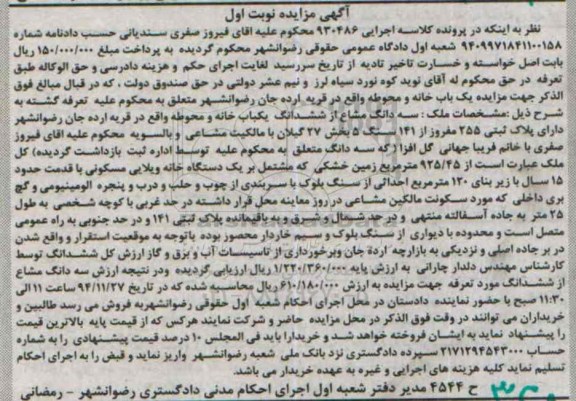 آگهی مزایده نوبت اول
نظر به اینکه در پرونده کلاسه اجرایی ۹۳۰۴۸۶ محکوم علیه اقای فیروز صفری سندیانی حسب دادنامه شماره
۹۴۰۹۹۷۱۸۴۱۱۰۰۱۵۸ شعبه اول دادگاه عمومی حقوقی رضوانشهر محکوم گردیده به پرداخت مبلغ ۱۵۰/۰۰۰/۰۰۰ ریال
بابت اصل خواسته و خسارت تاخیر تادیه از تاریخ سررسید لغایت اجرای حکم و هزینه دادرسی و حق الوکاله طبق
تعرفه در حق محکوم له آقای نوید کوه نورد سیاه لرز و نیم عشر دولتی در حق صندوق دولت ، که در قبال مبالغ فوق
الذکر جهت مزایده یک باب خانه و محوطه واقع در قریه ارده جان رضوانشهر متعلق به محکوم علیه تعرفه گشته به
شرح ذیل :مشخصات ملک : سه دانگ مشاع از ششدانگ یکباب خانه و محوطه واقع در قریه ارده جان رضوانشهر
دارای پلاک ثبتی ۲۵۵ مفروز از ۱۴۱ سنگ ۵ بخش ۲۷ گیلان با مالکیت مشاعی و بالسویه محکوم علیه اقای فیروز
صفری با خانم فریبا جهانی گل افزار( که سه دانگ متعلق به محکوم علیه توسط اداره ثبت بازداشت گردیده) کل
ملک عبارت است از ۹۲۵/۴۵ مترمربع زمین خشکی که مشتمل بر یک دستگاه خانه ویلایی مسکونی با قدمت حدود
۱۵ سال با زیر بنای ۱۲۰ مترمربع احداثی از سنگ بلوک با سربندی از چوب و حلب و درب و پنجره الومینیومی و گچ
بری داخلی که مورد سکونت مالکین مشاعی در روز معاینه محل قرار داشته در حد غربی با کوچه شخصی به طول
۲۵ متر به جاده آسفالته منتهی و در حد شمال و شرق و به باقیمانده پلاک ثبتی ۱۴۱ و در حد جنوبی به راه عمومی
متصل است و محدوده با دیواری از سنگ بلوک و سیم خاردار محصور بوده باتوجه به موقعیت استقرار و واقع شدن
در بر جاده اصلی و نزدیکی به بازارچه ارده جان وبرخورداری از تاسیسات آب و برق و گاز ارزش کل ششدانگ توسط
کارشناس مهندس دلدار چارانی به ارزش پایه ۱/۲۲۰/۳۶۰/۰۰۰ ریال ارزیابی گردیده ودر نتیجه ارزش سه دانگ مشاع
از ششدانگ مورد تعرفه جهت مزایده به ارزش ۶۱۰/۱۸۰/۰۰۰ ریال محاسبه شده که در تاریخ ۹۴/۱۱/۲۷ ساعت ۱۱ الی
۱۱:۳۰ صبح با حضور نماینده دادستان در محل اجرای احکام شعبه اول حقوقی رضوانشهربه فروش می رسد طالبین و
خریداران می توانند در وقت فوق الذکر در محل مزایده حاضر و شرکت نمایند هرکس که از قیمت پایه بالاترین قیمت
را پیشنهاد نماید به ایشان فروخته خواهد شد و خریدارا باید فی المجلس ۱۰ درصد قیمت پیشنهادی را به شماره
حساب ۲۱۷۱۲۹۴۵۴۳۰۰۰ سپرده دادگستری نزد بانک ملی شعبه رضوانشهر واریز نماید و قبض را به اجرای احکام
تسلیم نماید کلیه هزینه های اجرایی و غیره به عهده خریدار می باشد.
ح ۴۵۴۴ مدیر دفتر شعبه اول اجرای احکام مدنی دادگستری رضوانشهر - رمضانی